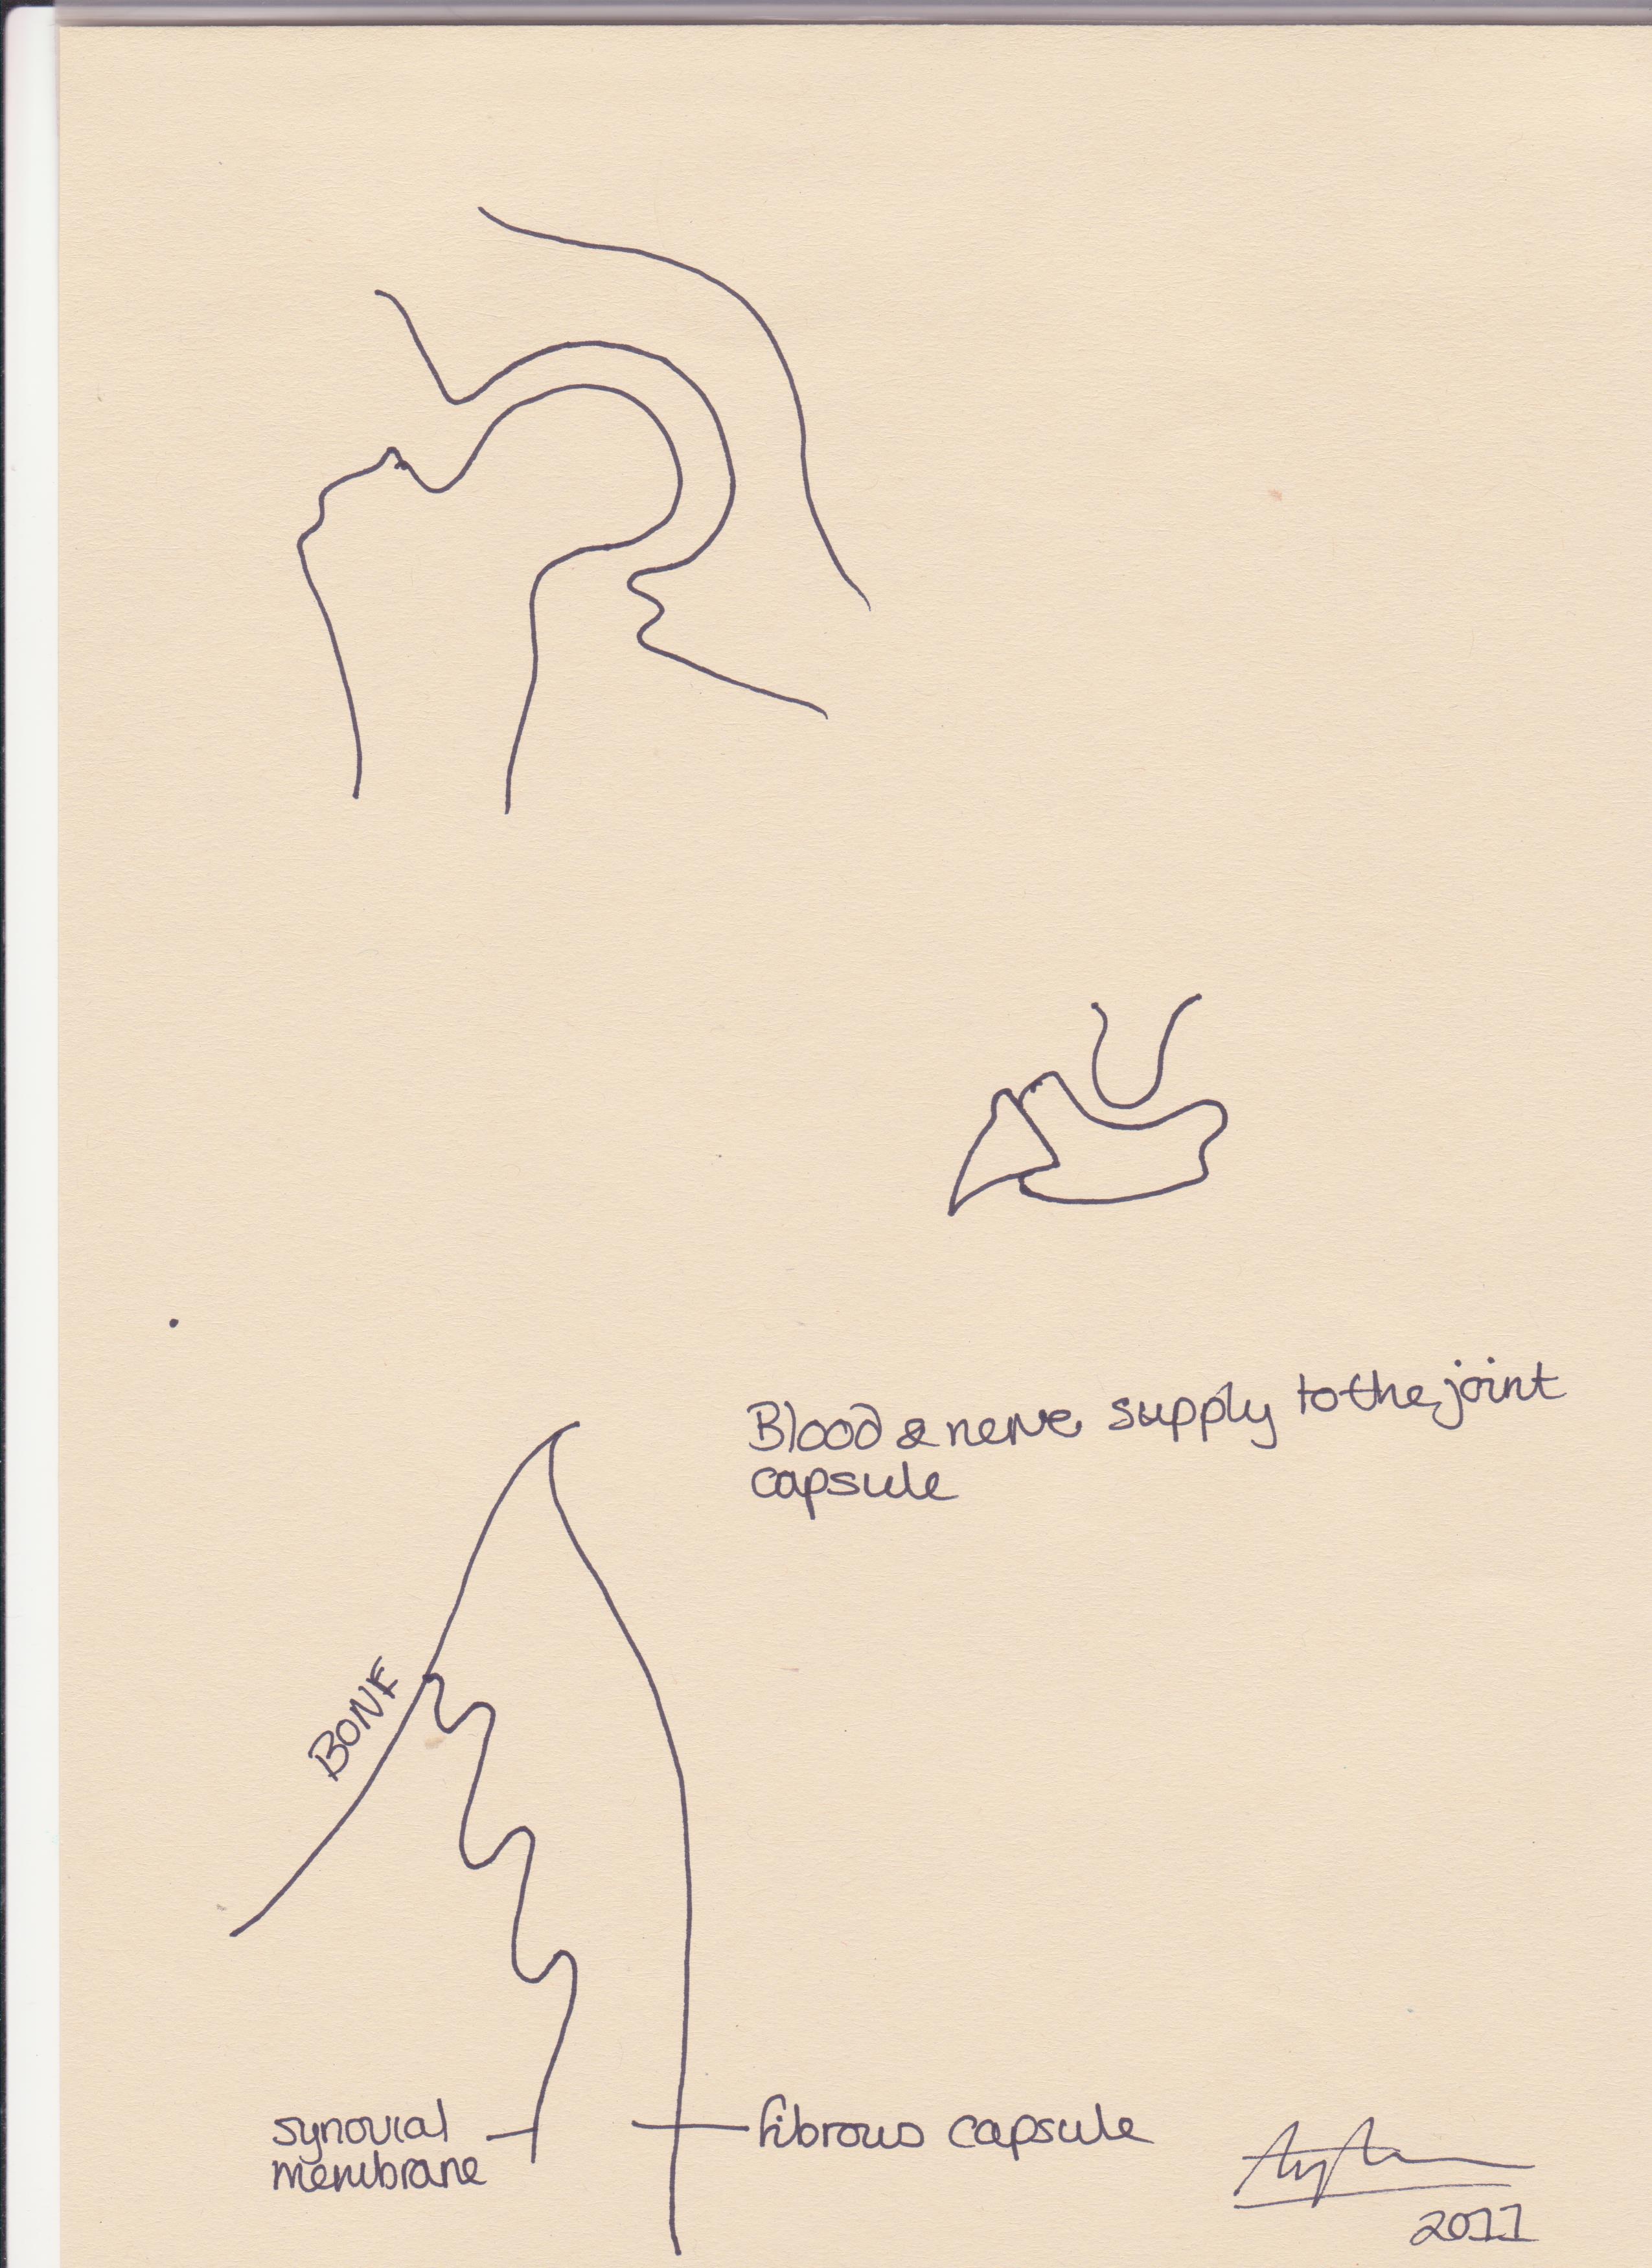 Blood & nerve supply to the joint
capsule
BONE
synovial
membrane
fibrous capsule
2011